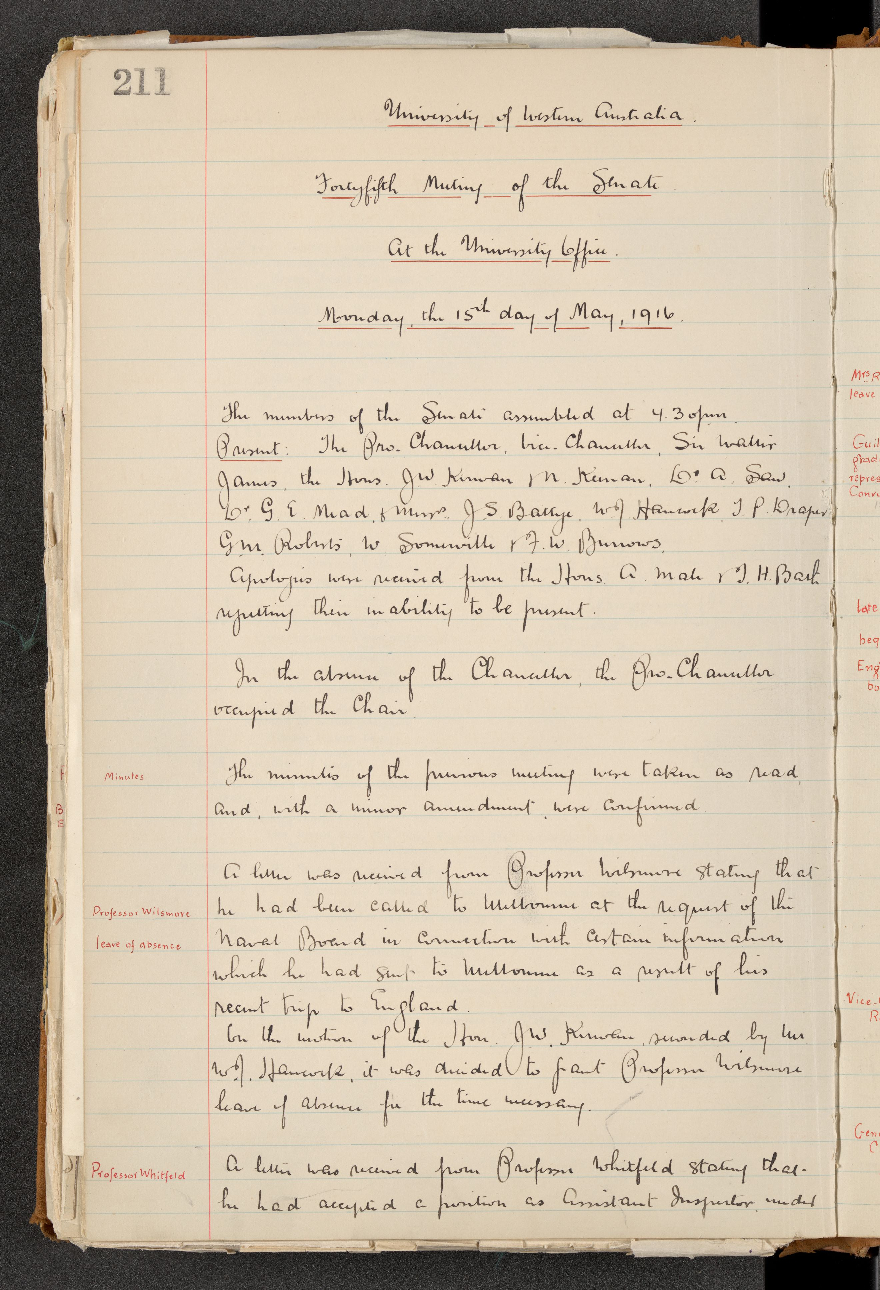 211
University of Western Australia.
Fortyfifth Meeting of the Senate
At the University Office.
Monday, the 15th day of May, 1916.
The members of the Senate assembled at 4.30pm.
Present: The Pro-Chancellor, Vice-Chancellor, Sir Walter
James, the Hons. J.W. Kirwan & N. Keenan, Dr A. Saw,
Dr G. E. Mead, & Messrs. J S Battye, W J Hancock, T. P. Draper
G.M. Roberts, W Somerville & F. W. Burrows.
Apologies were received from the Hons. A. Male & T. H. Bath
regretting their inability to be present.
In the absence of the Chancellor, the Pro-Chancellor
occupied the Chair.
Minutes
The minutes of the previous meeting were taken as read,
and, with a minor amendment, were confirmed
A letter was received from Professor Wilsmore stating that
Professor Wilsmore
he had been called to Melbourne at the request of the
leave of absence
Naval Board in connection with certain information
which he had sent to Melbourne as a result of his
recent trip to England.
On the motion of the Hon. J.W. Kirwan, seconded by Mr
W.J. Hancock, it was decided to grant Professor Wilsmore
leave of absence for the time necessary.
Professor Whitfeld
A letter was received from Professor Whitfeld stating that
he had accepted a position as Assistant Inspector, under
Mrs R
leave
Guil
grad
repres
Conv
late
beq
Eng
bo
Vice-
R
Gen
C